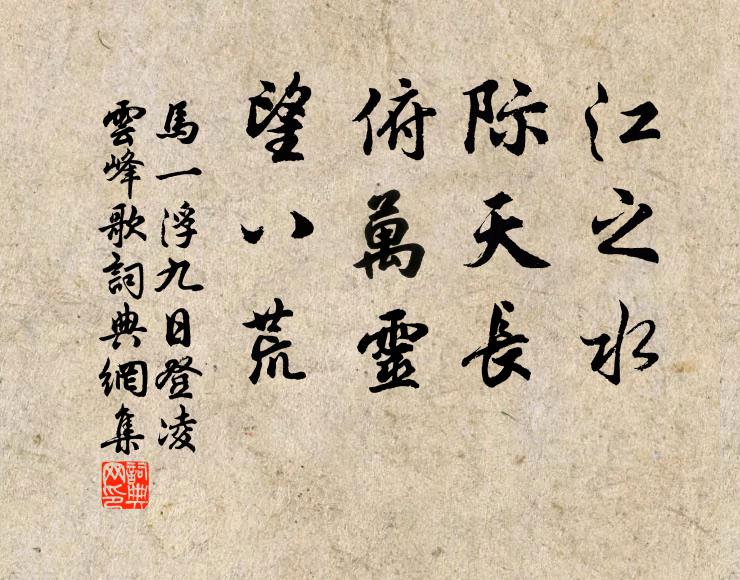 江之水
际天長
俯萬靈
望八荒
馬一浮九日登凌
雲峰歌詞典網集
詞典
网印